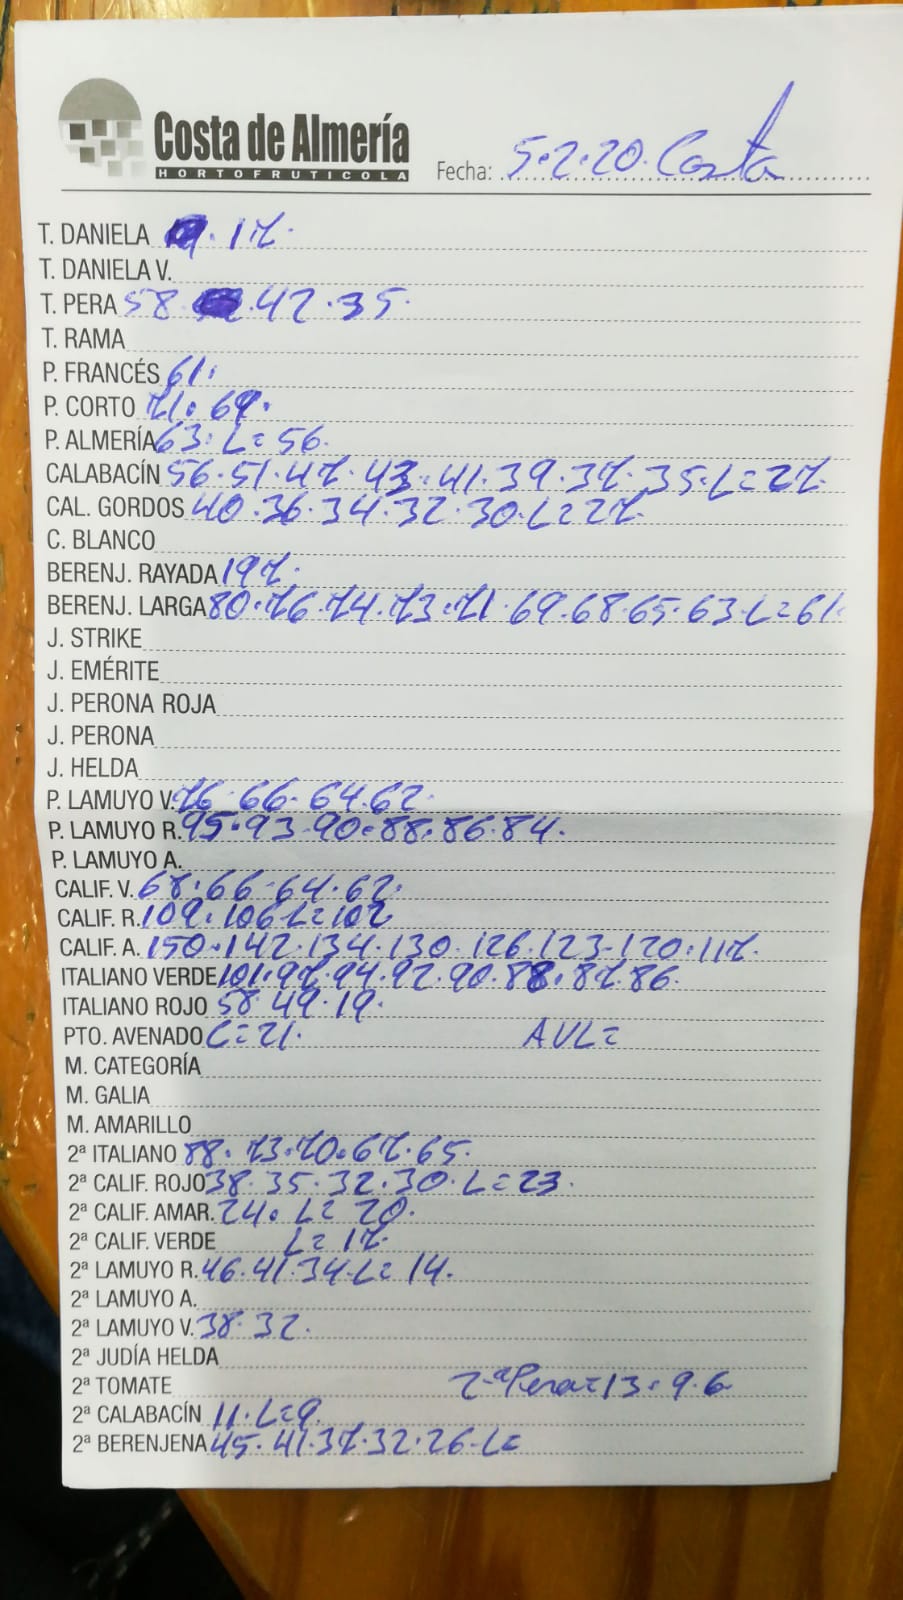 Costa de Almería
HORTOFRUTICOLA
Fecha: 5.2.20. Costa
T. DANIELA 17.
T. DANIELA V.
T. PERA 58. 42.35.
T. RAMA
P. FRANCÉS 61.
P. CORTO 71. 69.
P. ALMERÍA 63. L=56.
CALABACÍN 56.51.47.43.41.39.37.35.L=27.
CAL. GORDOS 40.36.34.32.30.L=27.
C. BLANCO
BERENJ. RAYADA 197.
BERENJ. LARGA 80.76.74.73.71.69.68.65.63.L=61.
J. STRIKE
J. EMÉRITE
J. PERONA ROJA
J. PERONA
J. HELDA
P. LAMUYO V. 76.66.64.62.
P. LAMUYO R. 95.93.90.88.86.84.
P. LAMUYO A.
CALIF. V. 68.66.64.62.
CALIF. R. 109.106.L=102
CALIF. A. 150.142.134.130.126.123.120.117.
ITALIANO VERDE 101.97.94.92.90.88.87.86.
ITALIANO ROJO 58.49.19.
PTO. AVENADO L=21. AVL=
M. CATEGORÍA
M. GALIA
M. AMARILLO
2ª ITALIANO 88.73.70.67.65.
2ª CALIF. ROJO 38.35.32.30.L=23.
2ª CALIF. AMAR. 24. L=20.
2ª CALIF. VERDE L=17.
2ª LAMUYO R. 46.41.34.L=14.
2ª LAMUYO A.
2ª LAMUYO V. 38.32.
2ª JUDÍA HELDA
2ª TOMATE 2ª Pera=13.9.6
2ª CALABACÍN 11.L=9.
2ª BERENJENA 45.41.37.32.26.L=